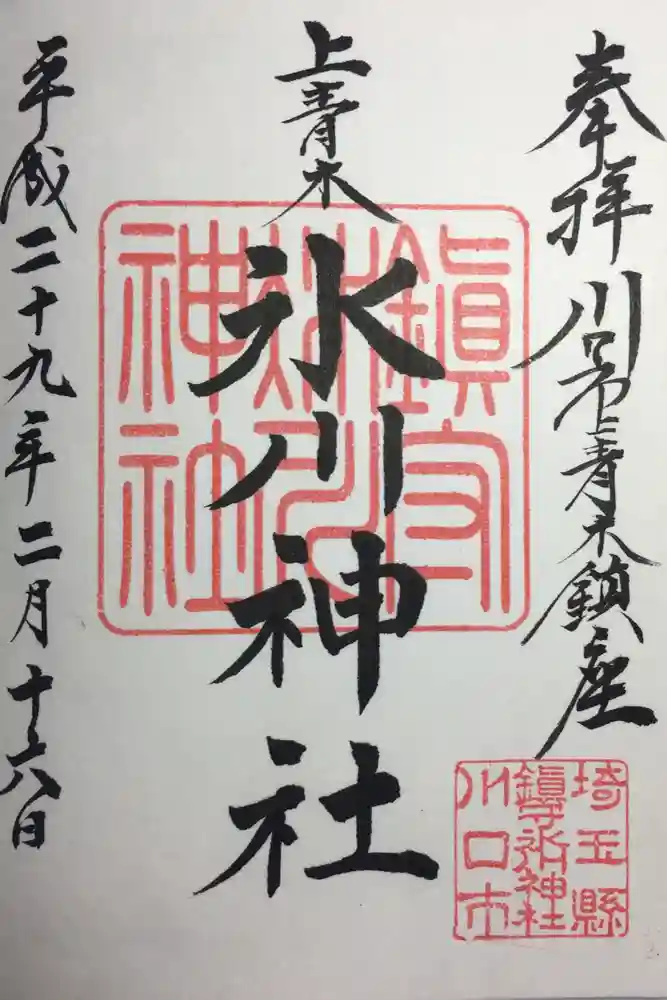 奉拝 川口市上青木鎮座
上青木
氷川神社
平成二十九年二月十六日
鎮守
氷川
神社
埼玉縣
鎮守氷川神社
川口市